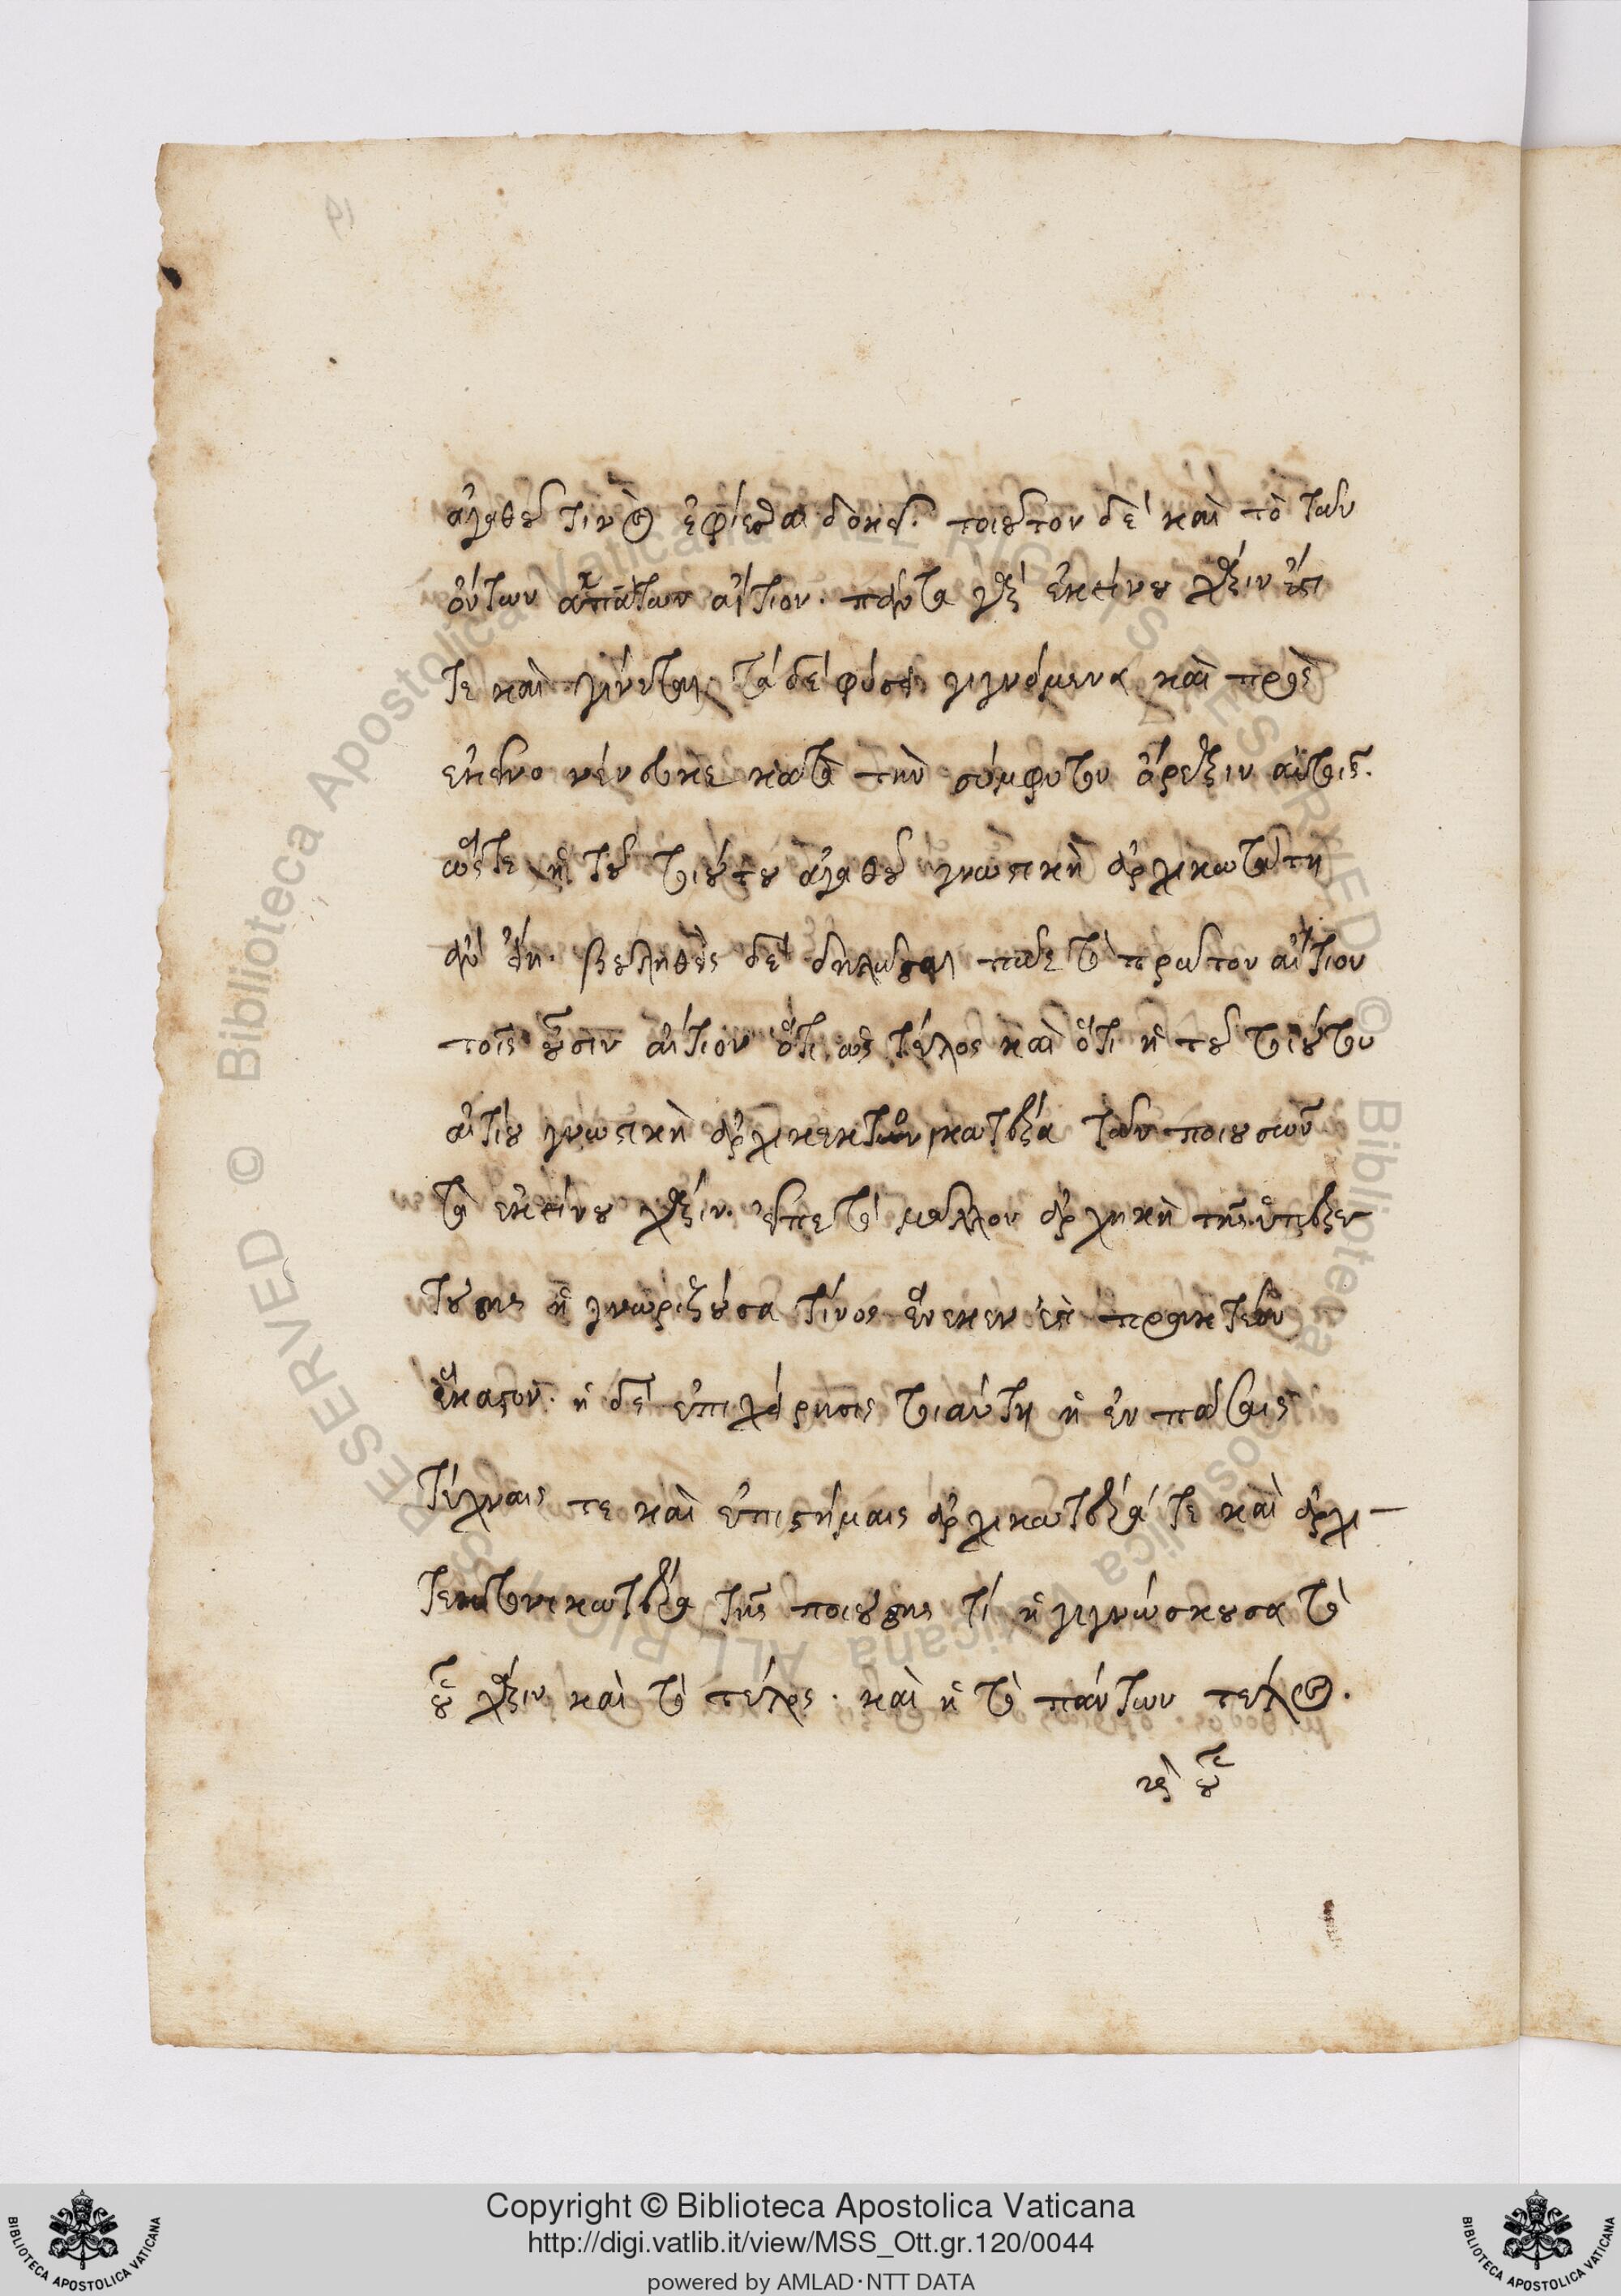 ἀγαθοῦ τινὸς ἐφίεσθαι δοκεῖ. τοιοῦτον δὲ καὶ τὸ τῶν
ὄντων ἁπάντων αἴτιον. πάντα γὰρ ἐκείνου χάριν ἐστί
τε καὶ γίνεται. τὰ δὲ φύσει γιγνόμενα καὶ πρὸς
ἐκεῖνο νένευκε κατὰ τὴν σύμφυτον ὄρεξιν αὐτοῖς.
ὥστε ἡ τοῦ τοιούτου ἀγαθοῦ γνωστικὴ ἀρχικωτάτη
ἂν εἴη. βουληθεὶς δὲ δηλῶσαι πῶς τὸ πρῶτον αἴτιον
τοῖς οὖσιν αἴτιον ὅτι ὡς τέλος καὶ ὅτι ἡ τοῦ τοιούτου
αἰτίου γνωστικὴ ἀρχικωτέρα τῶν ποιουσῶν
τὰ ἐκείνου χάριν. εἶπε τὸ μᾶλλον ἀρχηκὴ τῆς ὑπηρε
τούσης ἡ γνωρίζουσα τίνος ἕνεκεν ἐστὶ πρακτέον
ἕκαστον. ἡ δὲ ἐπιχείρησις τοιαύτη ἡ ἐν πάσαις
τέχναις τε καὶ ἐπιστήμαις ἀρχικωτέρα τε καὶ ἀρχι-
τεκτονικωτέρα τῆς ποιούσης τί ἡ γιγνώσκουσα τὸ
οὗ χάριν καὶ τὸ τέλος. καὶ ἡ τὸ πάντων τέλος.
καὶ οὗ
Copyright © Biblioteca Apostolica Vaticana
http://digi.vatlib.it/view/MSS_Ott.gr.120/0044
powered by AMLAD·NTT DATA